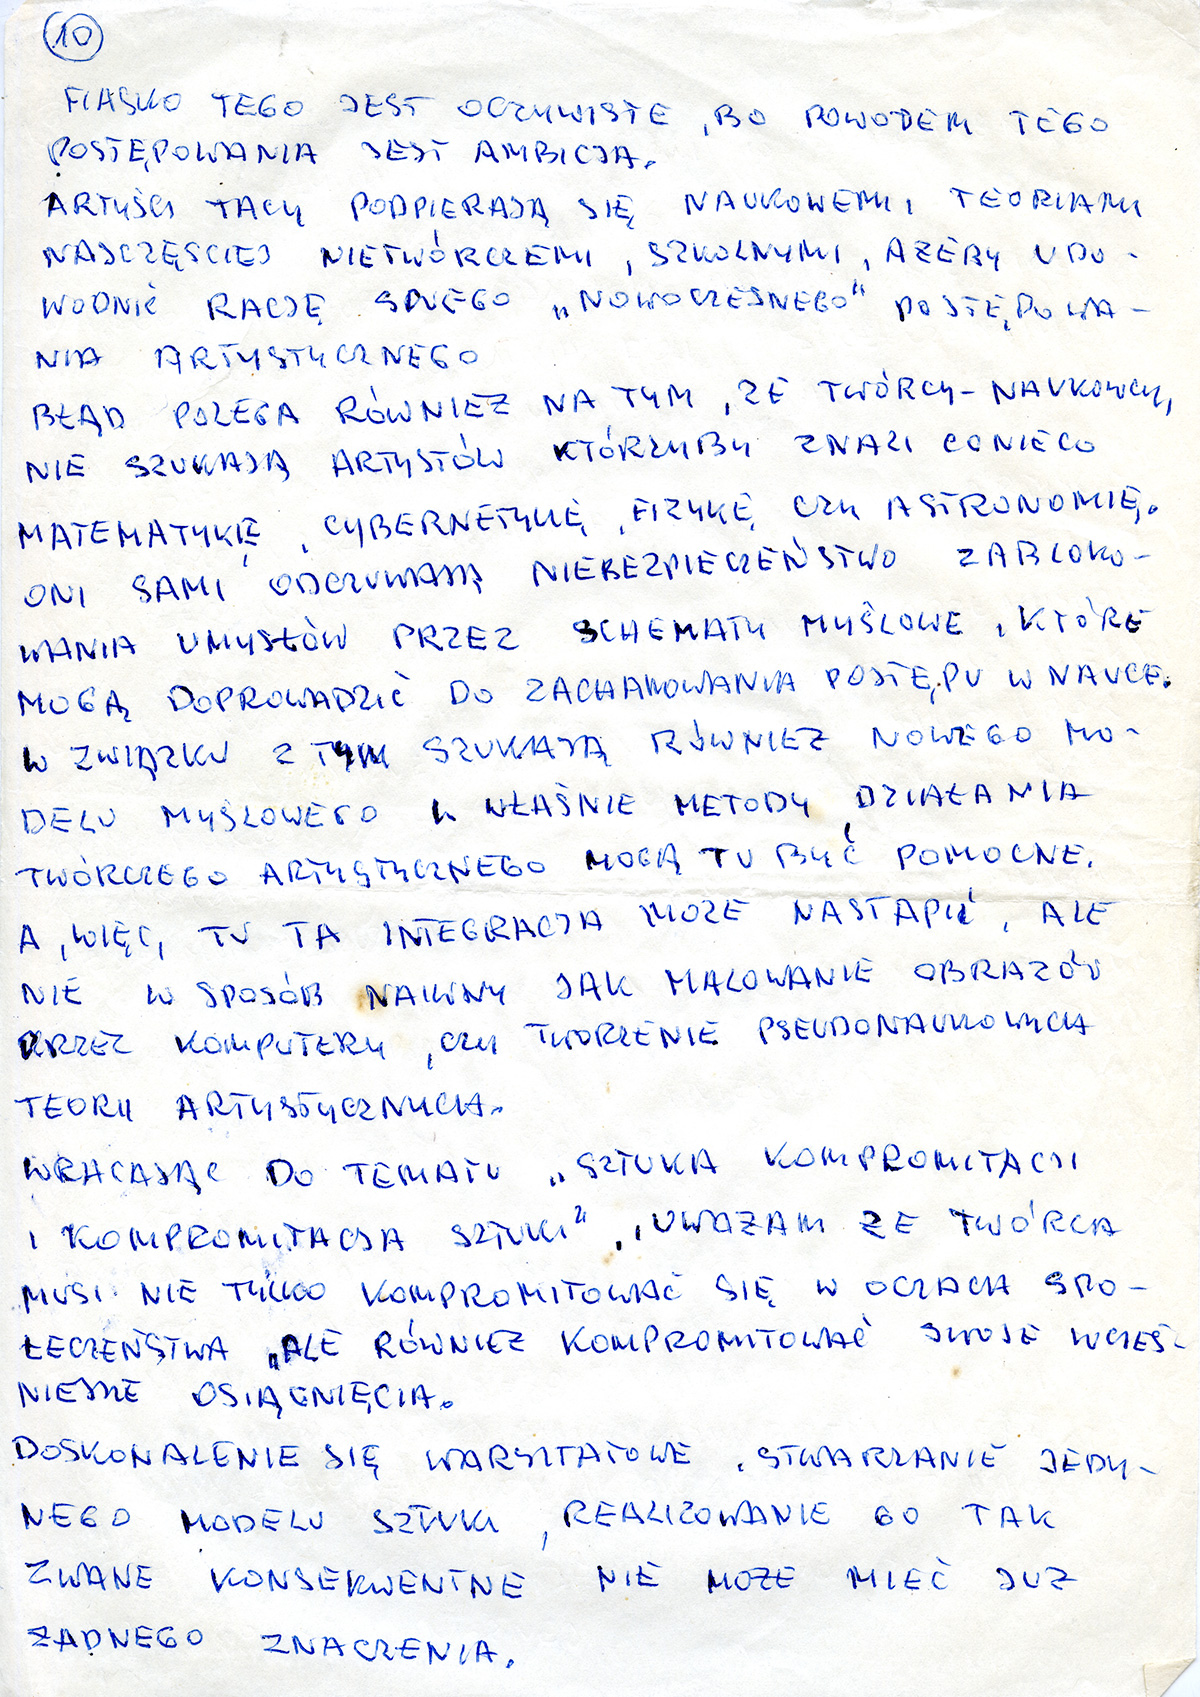 10
FIASKO TEGO JEST OCZYWISTE, BO POWODEM TEGO
POSTĘPOWANIA JEST AMBICJA.
ARTYŚCI TACY PODPIERAJĄ SIĘ NAUKOWEMI TEORIAMI
NAJCZĘŚCIEJ NIETWÓRCZEMI, SZKOLNYMI, AŻEBY UDO-
WODNIĆ RACJĘ SWEGO „NOWOCZESNEGO" POSTĘPOWA-
NIA ARTYSTYCZNEGO
BŁĄD POLEGA RÓWNIEZ NA TYM, ZE TWÓRCY-NAUKOWCY,
NIE SZUKAJĄ ARTYSTÓW KTÓRZYBY ZNALI CONIECO
MATEMATYKIĘ, CYBERNETYKĘ, FIZYKĘ CZY ASTRONOMIĘ.
ONI SAMI ODCZUWAJĄ NIEBEZPIECZEŃSTWO ZABLOKO-
WANIA UMYSŁÓW PRZEZ SCHEMATY MYŚLOWE, KTÓRE
MOGĄ DOPROWADZIĆ DO ZACHAMOWANIA POSTĘPU W NAUCE.
W ZWIĄZKU Z TYM SZUKAJĄ RÓWNIEZ NOWEGO MO-
DELU MYŚLOWEGO I WŁAŚNIE METODY DZIAŁANIA
TWÓRCZEGO, ARTYSTYCZNEGO MOGĄ TU BYĆ POMOCNE.
A, WIĘC, TU TA INTEGRACJA MOZE NASTAPIĆ, ALE
NIE W SPOSÓB NAIWNY JAK MALOWANIE OBRAZÓW
PRZEZ KOMPUTERY, CZY TWORZENIE PSEUDONAUKOWYCH
TEORII ARTYSTYCZNYCH.
WRACAJĄC DO TEMATU „SZTUKA KOMPROMITACJI
I KOMPROMITACJA SZTUKI", UWAZAM ZE TWÓRCA
MUSI NIE TYLKO KOMPROMITOWAĆ SIĘ W OCZACH SPO-
ŁECZEŃSTWA, ALE RÓWNIEZ KOMPROMITOWAĆ SWOJE WCZEŚ-
NIEJSZE OSIĄGNIĘCIA.
DOSKONALENIE SIĘ WARSZTATOWE, STWARZANIE JEDY-
NEGO MODELU SZTUKI, REALIZOWANIE GO TAK
ZWANE KONSEKWENTNE NIE MOZE MIEĆ JUZ
ŻADNEGO ZNACZENIA.